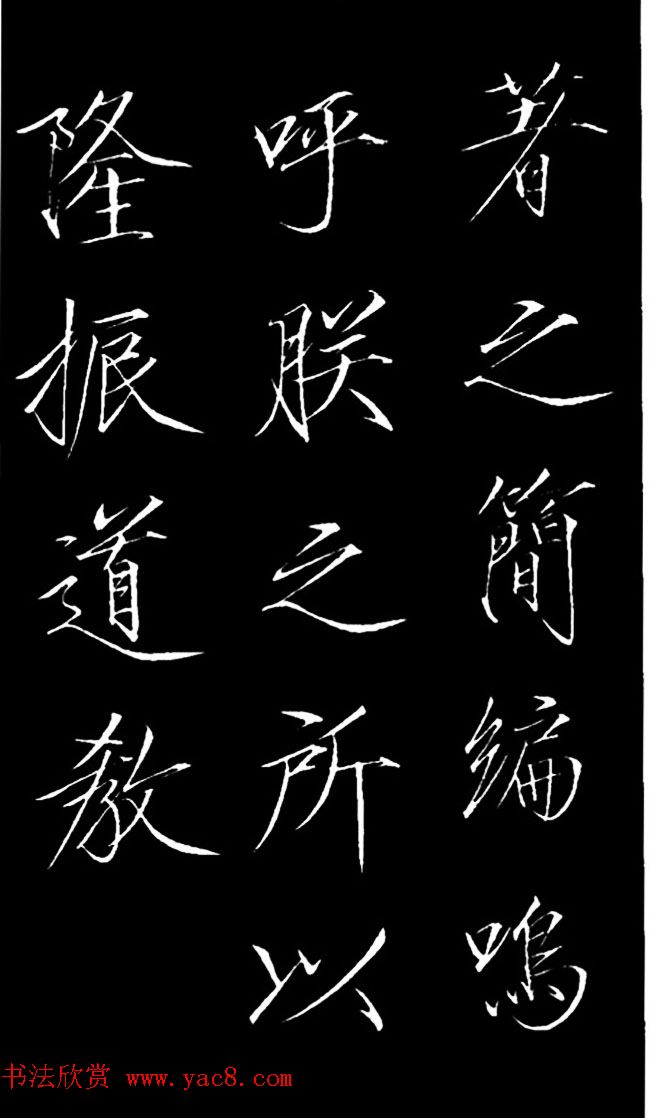 著之簡編嗚
呼朕之所以
隆振道教
书法欣赏 www.yac8.com